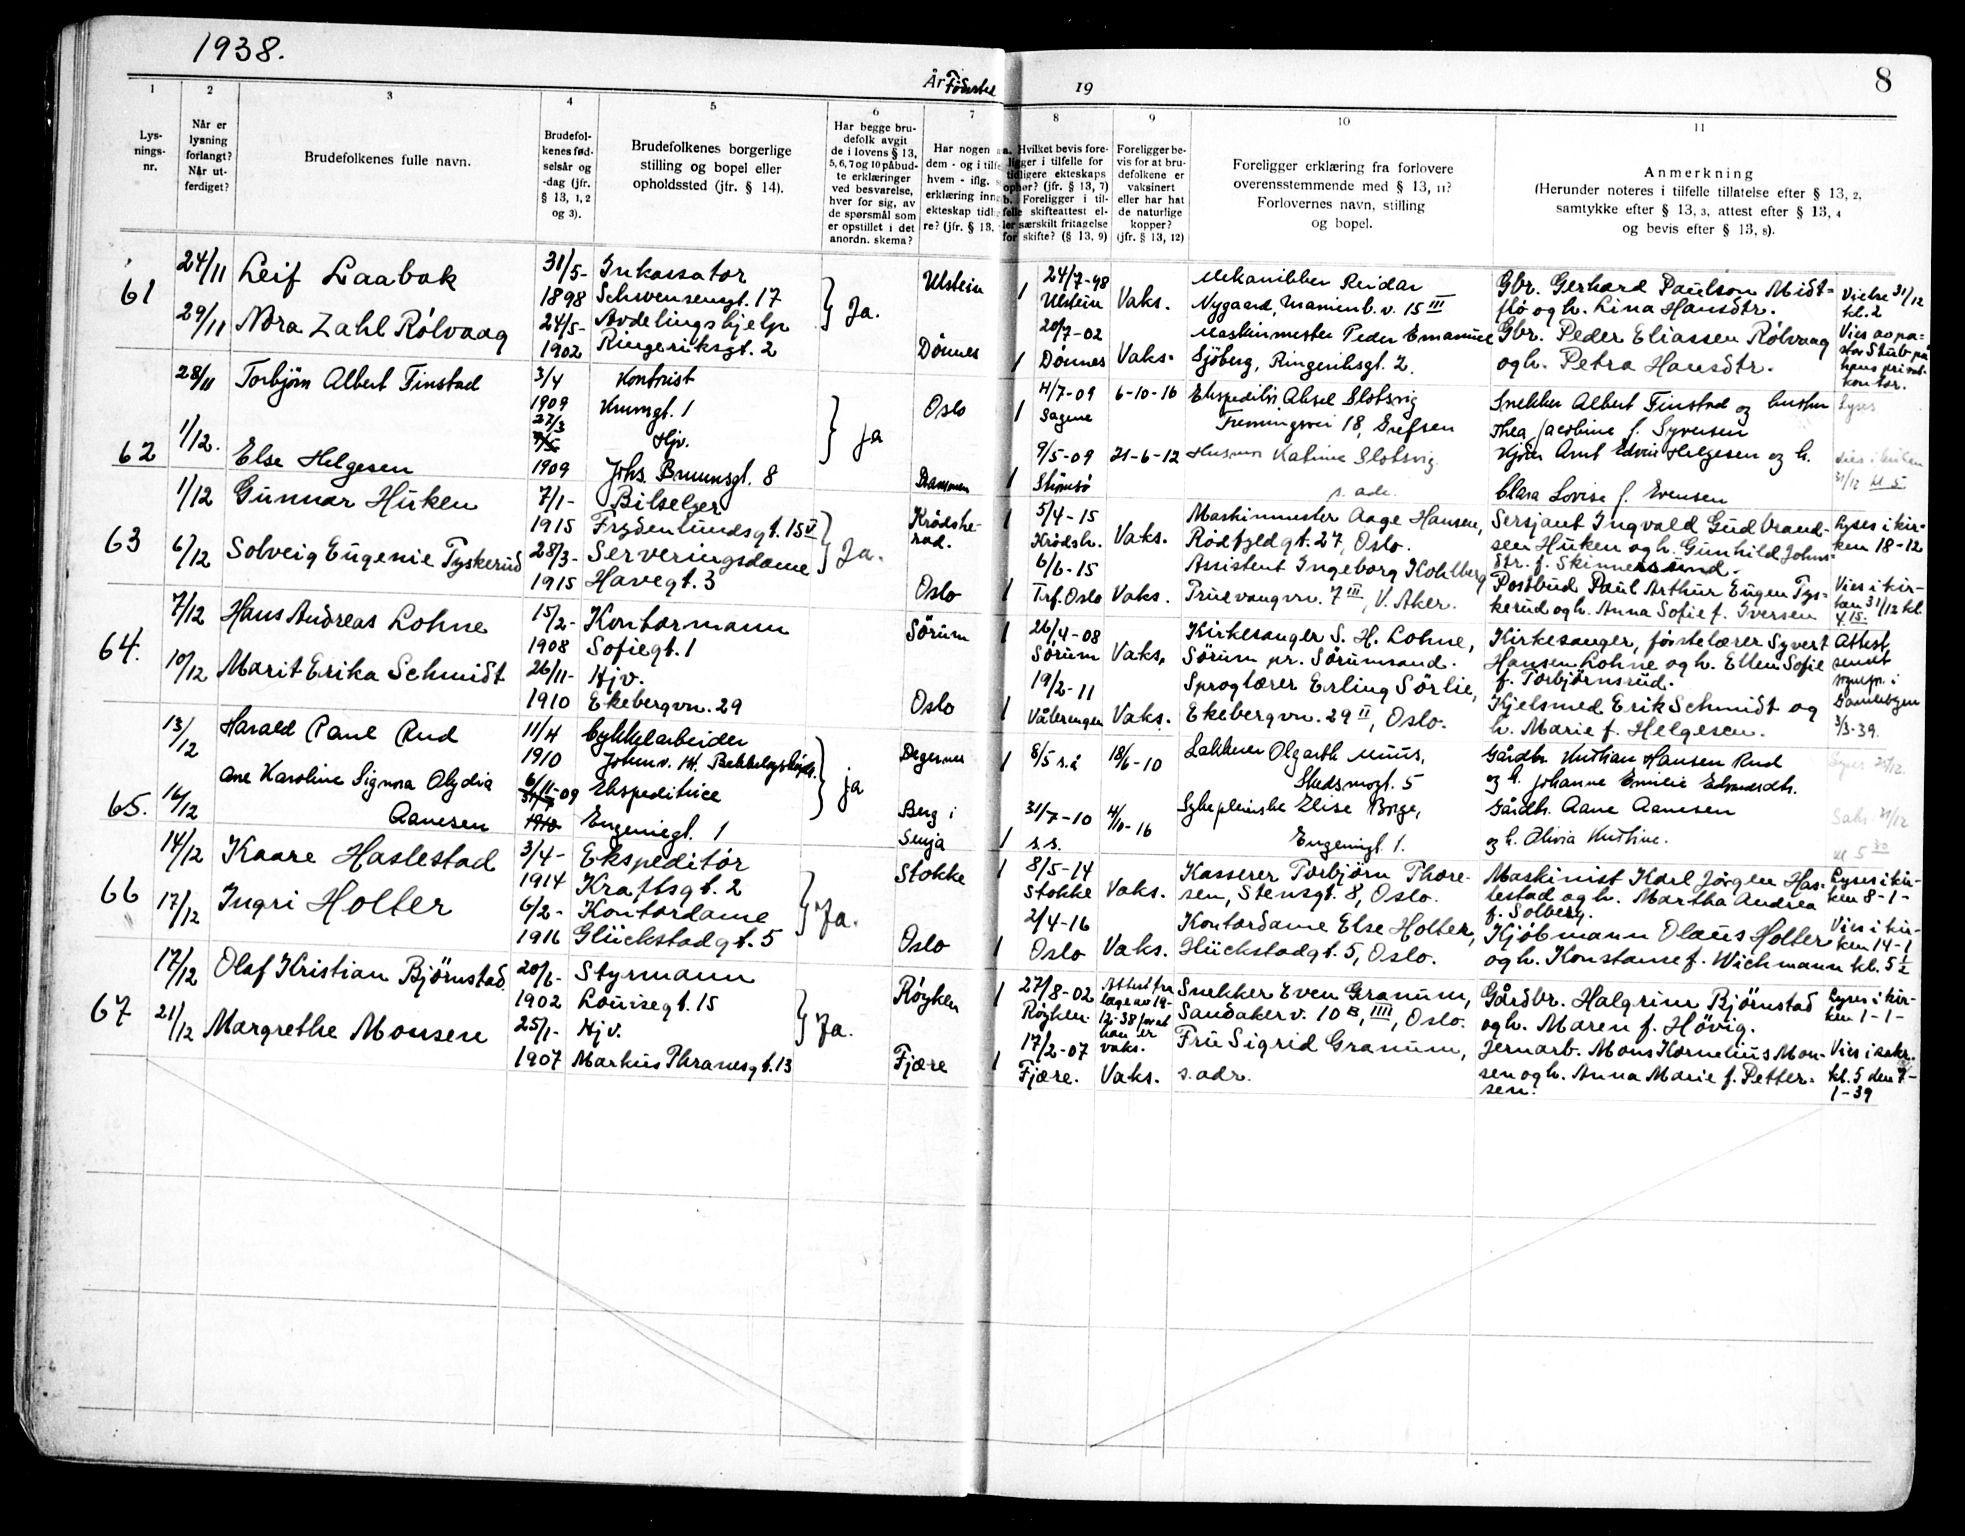 1938.
År Fødested
19
8
1
2
3
4
5
6
7
8
9
10
11
Lys-
nings-
nr.
Når er
lysning
forlangt?
Når ut-
ferdiget?
Brudefolkenes fulle navn.
Brudefol-
kenes fød-
selsår og
-dag (jfr.
§ 13, 1, 2
og 3).
Brudefolkenes borgerlige
stilling og bopel eller
opholdssted (jfr. § 14).
Har begge bru-
defolk avgit
de i lovens § 13,
5, 6, 7 og 10 påbud-
te erklæringer
ved besvarelse,
hver for sig, av
de spørsmål som
er opstillet i det
anordn. skema?
Har nogen a
dem - og i tilf
hvem - iflg.
erklæring inng
ekteskap tidl
re? (jfr. § 13,
a. Hvilket bevis fore-
ligger i tilfelle for
tidligere ekteskaps
ophør? (jfr. § 13, 7)
b. Foreligger i til-
felle skifteattest el-
ler særskilt fritagelse
for skifte? (§ 13, 9)
Foreligger be-
vis for at bru-
defolkene er
vaksinert
eller har hat
de naturlige
kopper?
(jfr. § 13, 12)
Foreligger erklæring fra forlovere
overensstemmende med § 13, 11?
Forlovernes navn, stilling
og bopel.
Anmerkning
(Herunder noteres i tilfelle tillatelse efter § 13, 2,
samtykke efter § 13, 3, attest efter § 13, 4
og bevis efter § 13, 8).
61
24/11
Leif Laabak
31/5-
1898
Inkassator
Schwensensgt. 17
} Ja.
Ulstein
1
24/7-98
Ulstein
Vaks.
Mekaniker Reidar
Nygaard, Marienb. v. 15 III
Gbr. Gerhard Paulson Midt-
flø og h. Lina Hansdtr.
Vielse 31/12
kl. 2
29/11
Nora Zahl Rølvaag
24/5-
1902
Avdelingshjelp
Ringeriksgt. 2
Dønnes
1
20/7-02
Dønnes
Vaks.
Maskinmester Peder Emanuel
Sjöberg, Ringeriksgt. 2.
Gbr. Peder Eliassen Rølvaag
og h. Petra Hansdtr.
Vies av pa-
stor Stub på
hans privat-
kontor.
62
28/11
Torbjørn Albert Finstad
3/4
1909
Kontorist
Krumgt. 1
} ja
Oslo
1
4/7-09
Sagene
6-10-16
Ekspeditør Aksel Slotsvig
Fremingsvei 18, Grefsen
Snekker Albert Finstad og hustru
Thea Jacobine f. Syversen
Lyses
1/12.
Else Helgesen
27/3
1909
Hjv.
Johs. Brunsgt. 8
Drammen
1
9/5-09
Strømsø
21-6-12
Husmor Katrine Slotsvig
s. adr.
Kjører Arnt Edvin Helgesen og h.
Clara Lovise f. Evensen
Vies i kirken
31/12 kl 5
63
1/12
Gunnar Huken
7/1-
1915
Bilselger
Frydenlundsgt. 15 II
} Ja.
Krødshe-
rad.
1
5/4-15
Krødsh.
Vaks.
Maskinmester Aage Hansen,
Rödfyldgt. 27, Oslo.
Sersjant Ingvald Gudbrand-
sen Huken og h. Gunhild Johns-
dtr. f. Skinnessund.
Lyses i kir-
ken 18-12
6/12
Solveig Eugenie Tyskerud
28/3-
1915
Serveringsdame
Havegt. 3
Oslo
1
6/6-15
Trf. Oslo
Vaks.
Assistent Ingeborg Kohlberg
Tuevangvn. 7 III, V. Aker.
Postbud Paul Arthur Eugen Tys-
kerud og h. Anna Sofie f. Iversen
Vies i kir-
ken 31/12 kl.
4.15.
64.
7/12
Hans Andreas Lohne
15/2-
1908
Kontormann
Sofiegt. 1
Sørum
1
26/4-08
Sørum
Vaks.
Kirkesanger S. H. Lohne,
Sørum pr. Sørumsand.
Kirkesanger, førstelærer Syvert
Hansen Lohne og h. Ellen Sofie
f. Torbjørnsrud.
Attest
sendt
sognepr. i
Gamlebyen
3/3-39.
10/12
Marit Erika Schmidt
26/11-
1910
Hjv.
Ekebergvn. 29
Oslo
1
19/2-11
Vålerengen
Vaks.
Sproglærer Erling Sörlie,
Ekebergvn. 29 II, Oslo.
Kjelsmed Erik Schmidt og
h. Marie f. Helgesen.
65.
13/12
Harald Paul Rud
11/4
1910
Cykkelarbeider
} ja
Degernes
1
8/5 s.å
18/6-10
Lakkerer Olgarth Muus,
Stedsmogt. 5
Gårdbr. Kristian Hansen Rud
og h. Johanne Emilie Edvardsdtr.
16/12
Ane Karoline Signora Olydia
Aanesen
6/11-09
1910
Ekspeditrice
Eugeniegt. 1
Berg i
Senja
1
31/7-10
s.s.
4/10-16
Sykepleierske Elise Borge,
Eugeniegt. 1.
Gårdbr. Aane Aanesen
og h. Olivia Kristine.
kl 5 30
66
14/12
Kaare Haslestad
3/4-
1914
Ekspeditør
Kraftsgt. 2
} Ja.
Stokke
1
8/5-14
Stokke
Vaks.
Kasserer Torbjørn Thore-
sen, Stensgt. 8, Oslo.
Maskinist Karl Jørgen Has-
lestad og h. Martha Andrea
f. Solberg.
Lyses i kir-
ken 8-1-
17/12
Ingri Holter
6/2-
1916
Kontordame
Glückstadgt. 5
Oslo
1
2/4-16
Oslo
Vaks.
Kontordame Else Holter,
Glückstadgt. 5, Oslo.
Kjøbmann Olaus Holter
og h. Konstanse f. Wichmann
Vies i kir-
ken 14-1
kl. 5 1/2
67
17/12
Olaf Kristian Bjørnstad
20/6-
1902
Styrmann
Louisegt. 15
} Ja.
Røyken
1
27/8-02
Røyken
Attest fra
lege av 19-
12-38 for at
han er
vaks.
Snekker Even Granum,
Sandakerv. 10 B, IIII, Oslo.
Gårdbr. Halgrim Bjørnstad
og h. Maren f. Hövig.
Lyses i kir-
ken 1-1-
21/12
Margrethe Monsen
25/1-
1907
Hjv.
Markus Thranesgt. 13
Fjære
1
17/2-07
Fjære.
Vaks.
Fru Sigrid Granum,
s. adr.
Jernarb. Mons Kornelius Mon-
sen og h. Anna Marie f. Petter-
sen.
Vies i sakr.
kl. 5 den 7-
1-39